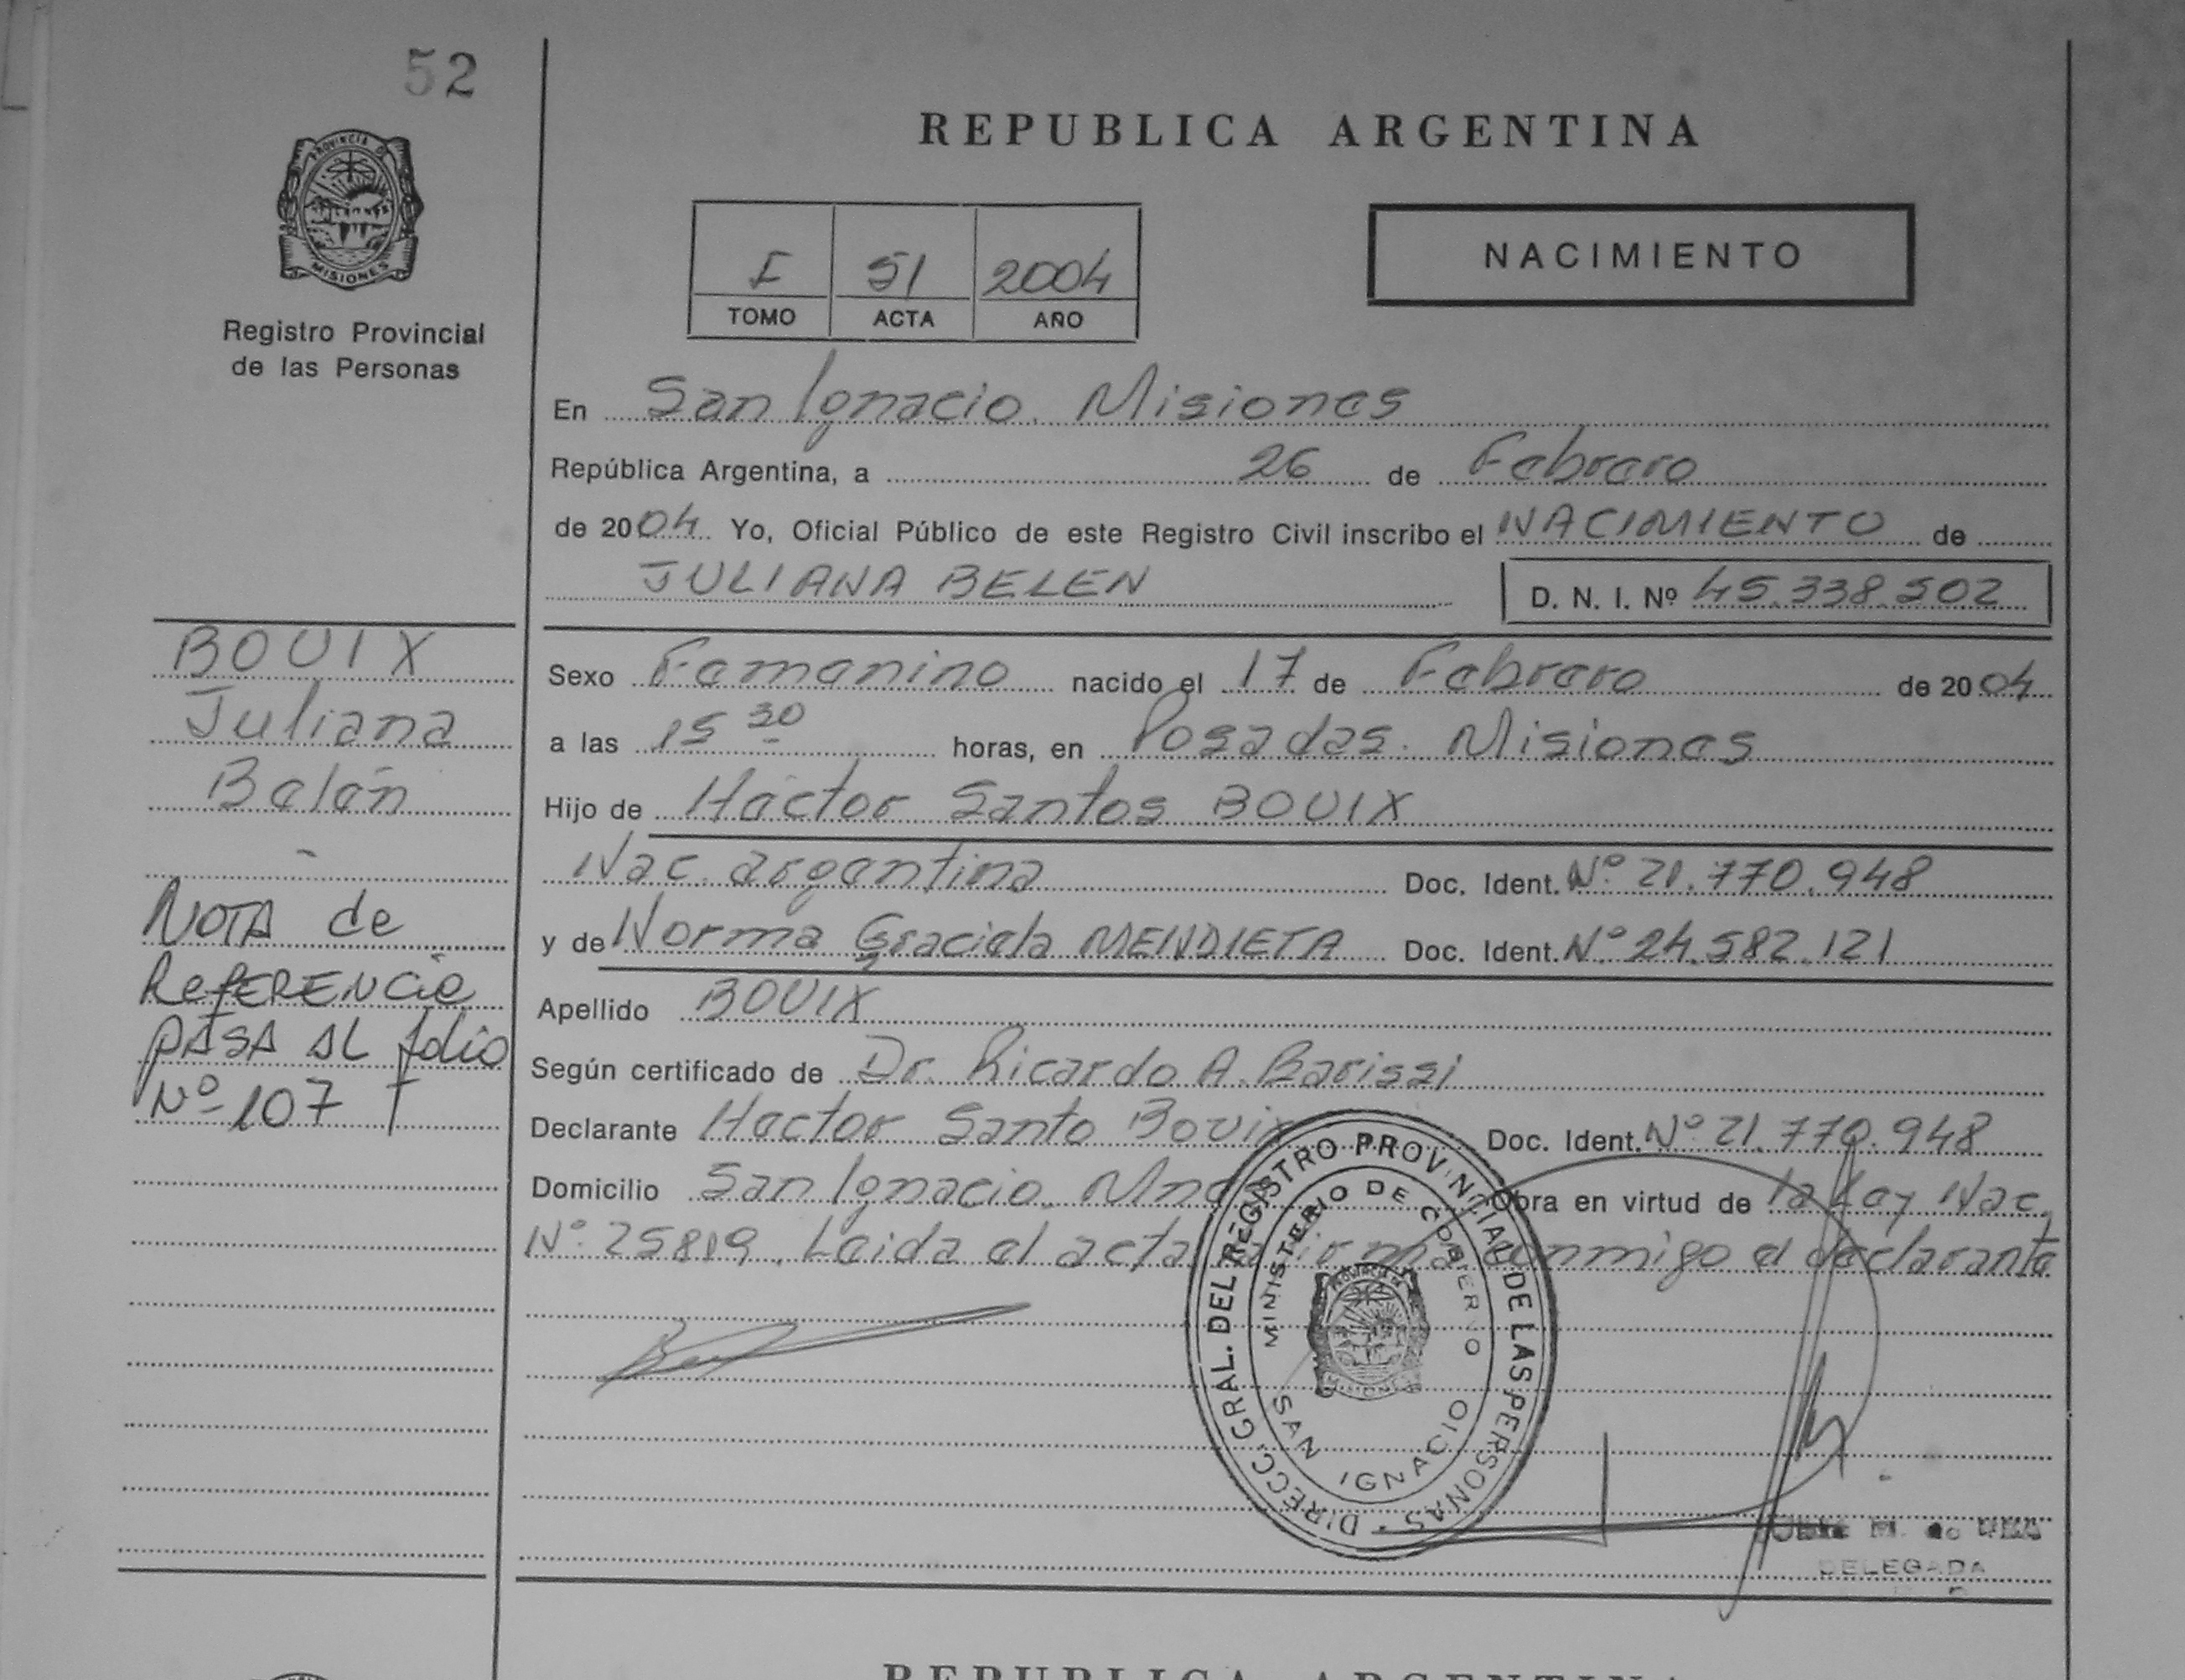 52
REPUBLICA ARGENTINA
PROVINCIA DE
MISIONES
Registro Provincial
de las Personas
I 51 2004
TOMO ACTA AÑO
NACIMIENTO
En San Ignacio. Misiones
República Argentina, a 26 de Febrero
de 2004. Yo, Oficial Público de este Registro Civil inscribo el NACIMIENTO de
JULIANA BELEN D. N. I. Nº 45.338.502
BOUIX
Juliana
Belén
-
NOTA de
ReFERENCia
PASA AL folio
Nº 107
Sexo Femenino nacido el 17 de Febrero de 2004
a las 15 30 horas, en Posadas. Misiones
Hijo de Héctor Santos BOUIX
Nac. argentina Doc. Ident. Nº 21.770.948
y de Norma Graciela MENDIETA Doc. Ident. Nº 24.582.121
Apellido BOUIX
Según certificado de Dr. Ricardo A. Barissi
Declarante Hector Santo Bouix Doc. Ident. Nº 21.770.948
Domicilio San Ignacio. Mnes Obra en virtud de la Ley Nac.
Nº 25819. Leida el acta, la firma conmigo el declarante
DIRECC. GRAL. DEL REGISTRO PROVINCIAL DE LAS PERSONAS
MINISTERIO DE GOBIERNO
SAN IGNACIO
MISIONES
DELEGADA
REPUBLICA ARGENTINA